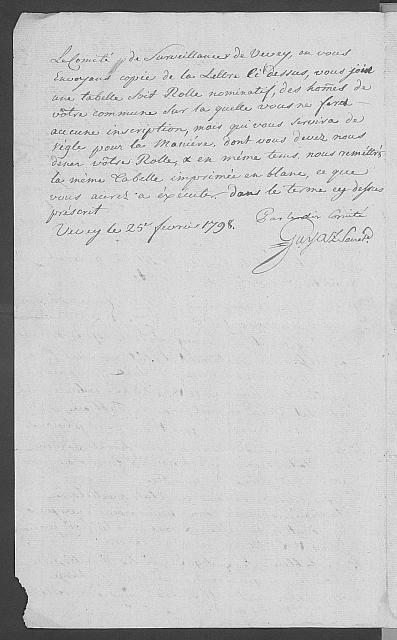 Le Comité de Surveillance de Vevey, en vous
Envoyant copie de la Lettre Ci dessus, vous joint
une tabelle soit Rolle nominatif, des hom̃es de
vôtre commune sur la quelle vous ne ferez
aucune inscription, mais qui vous servira de
régle pour la Maniére, dont vous devez nous
doner vôtre Rolle, & en même tems, nous remettrés
la même tabelle imprimée en blanc, ce que
vous aurez a éxécuter, dans le terme cy dessus
préscrit
Vevey le 25e fevrier 1798.
Par Comité